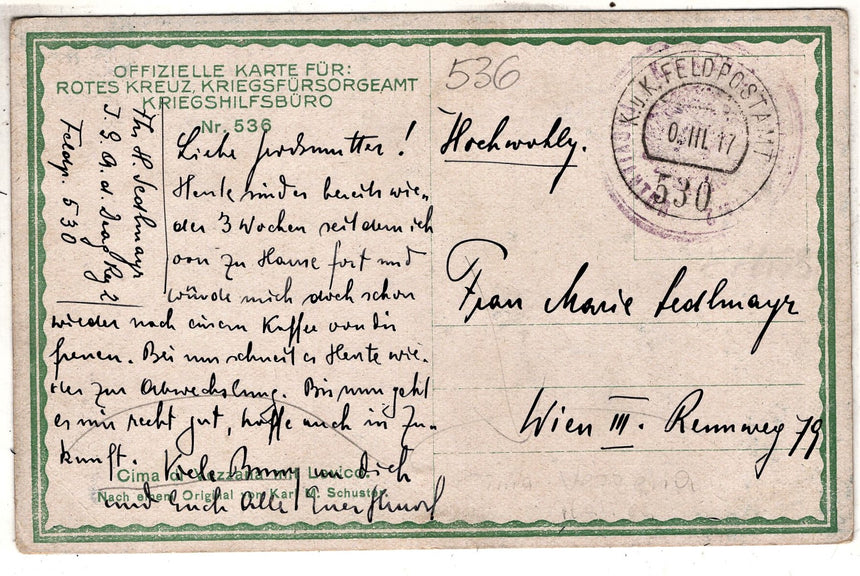 OFFIZIELLE KARTE FÜR:
ROTES KREUZ, KRIEGSFÜRSORGEAMT
KRIEGSHILFSBÜRO
Nr. 536
536
K.u.K. FELDPOSTAMT
III. 17
530
Sedlmayr
Feldp. 530
Liebe Grossmutter!
Heute sind es bereits wie-
der 3 Wochen seitdem ich
von zu Hause fort und
würde mich doch schon
wieder nach einem Kaffee von dir
freuen. Bei uns schneit es Heute wie-
der zur Abwechslung. Bis nun geht
es mir recht gut, hoffe auch in Zu-
kunft. Viele an Dich
und Euch Alle!
Cima di Vezzana mit
Nach einem Original von Karl M. Schuster.
Hochwohlg.
Frau Marie Sedlmayr
Wien III. Rennweg 79